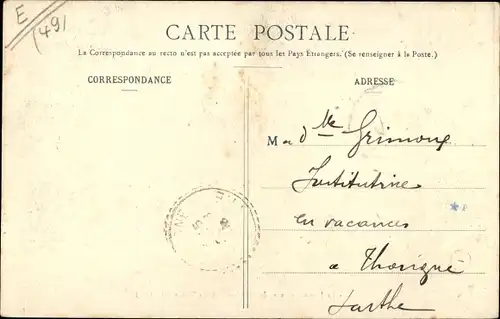 E
(49)
CARTE POSTALE
La Correspondance au recto n'est pas acceptée par tous les Pays Étrangers. (Se renseigner à la Poste.)
CORRESPONDANCE
ADRESSE
Mad^lle Grimoux
Institutrice
en vacances
à Thorigné
Sarthe